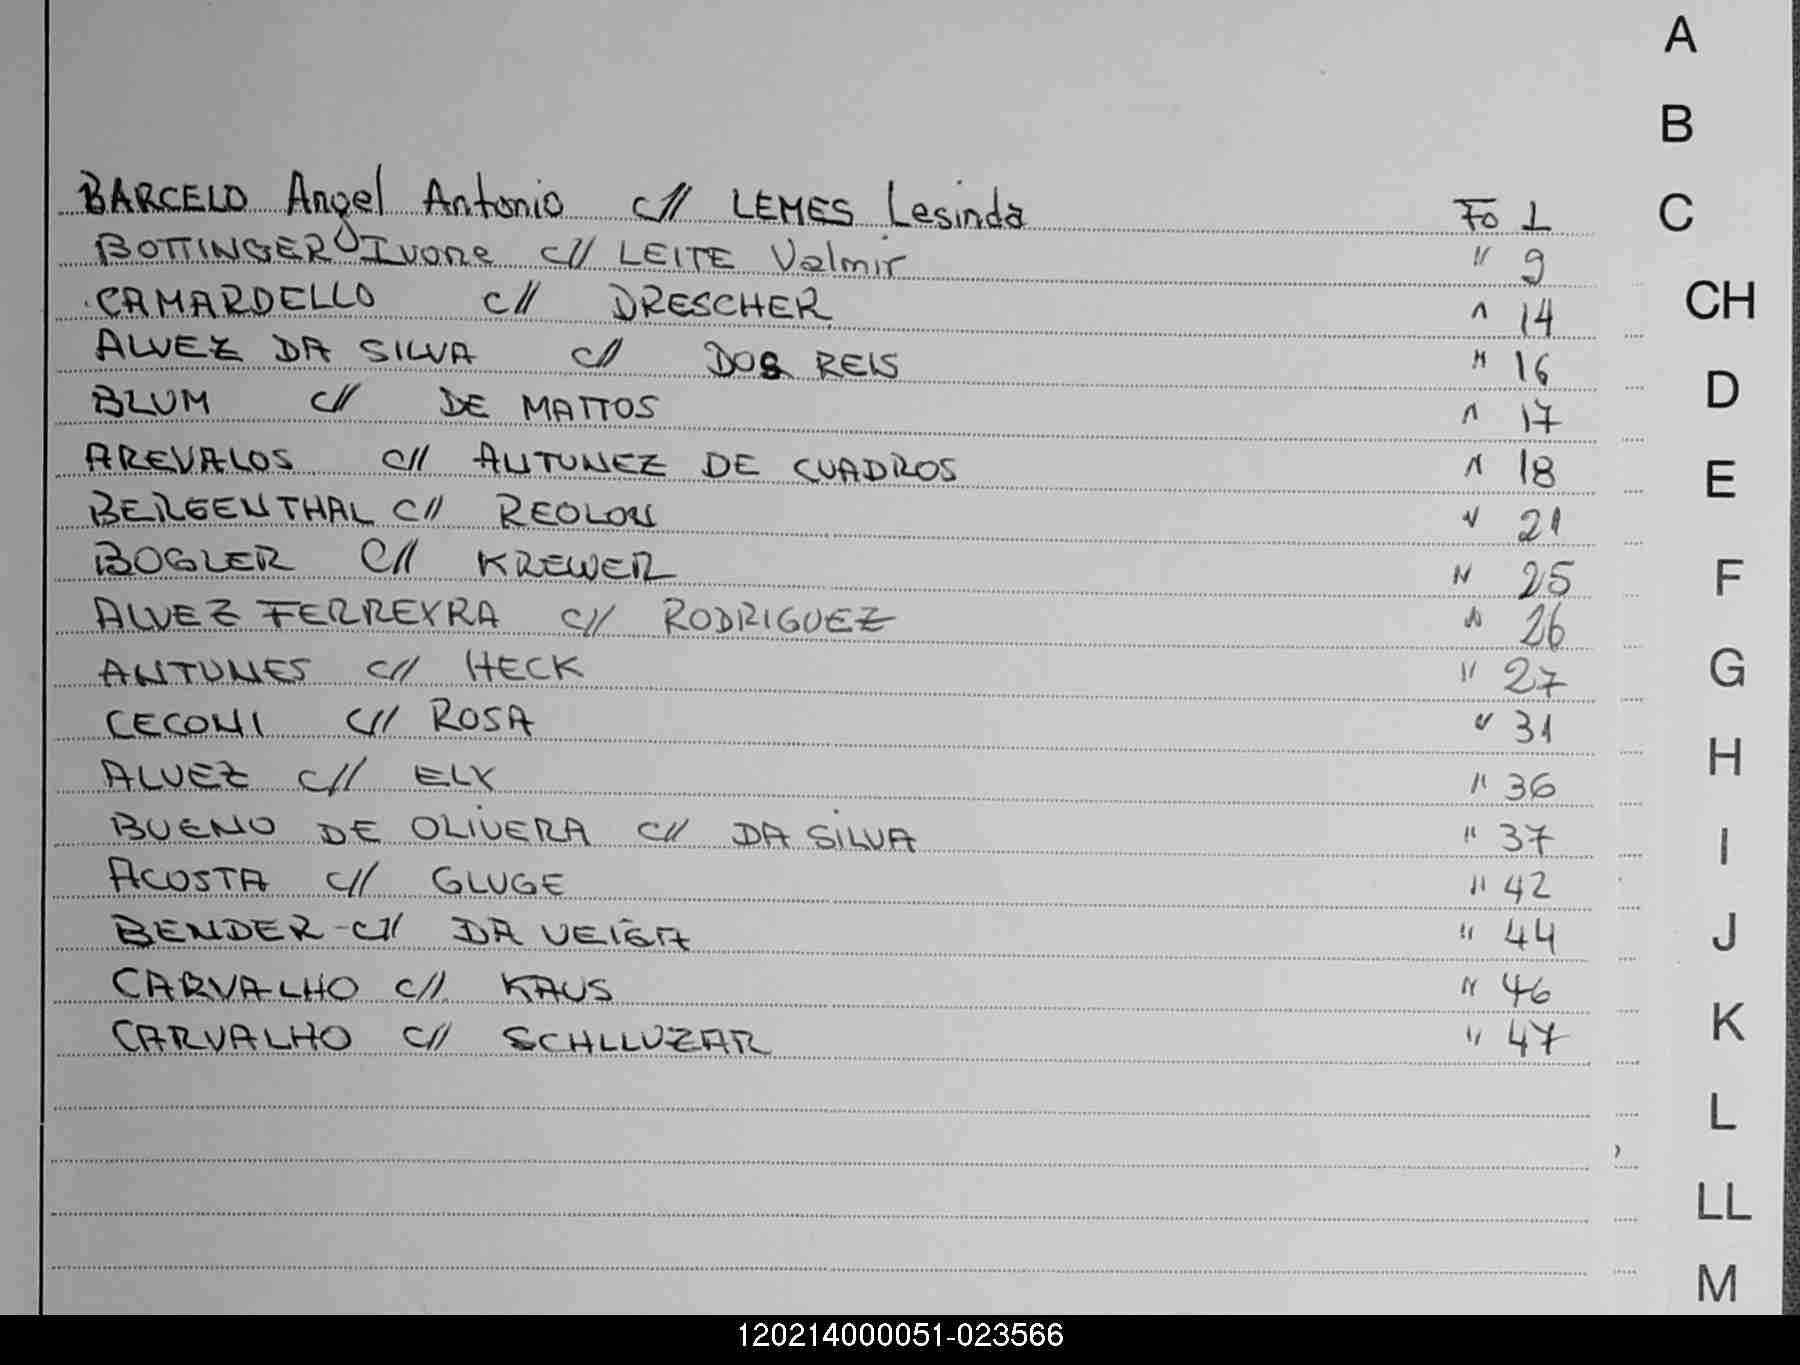 A
B
C
BARCELO Angel Antonio c// LEMES Lesinda Fo 1
BOTTINGER Ivone c// LEITE Valmir " 9
CAMARDELLO c// DRESCHER " 14
CH
ALVEZ DA SILVA c// DOS REIS " 16
BLUM c// DE MATTOS " 17
D
AREVALOS c// ANTUNEZ DE CUADROS " 18
E
BERGENTHAL c// REOLON " 21
BOGLER c// KREWER " 25
F
ALVEZ FERREYRA c// RODRIGUEZ " 26
ANTUNES c// HECK " 27
G
CECONI c// ROSA " 31
ALVEZ c// ELY " 36
H
BUENO DE OLIVERA c// DA SILVA " 37
I
ACOSTA c// GLUGE " 42
BENDER c// DA VEIGA " 44
J
CARVALHO c// KAUS " 46
CARVALHO c// SCHLLUZAR " 47
K
L
LL
M
120214000051-023566